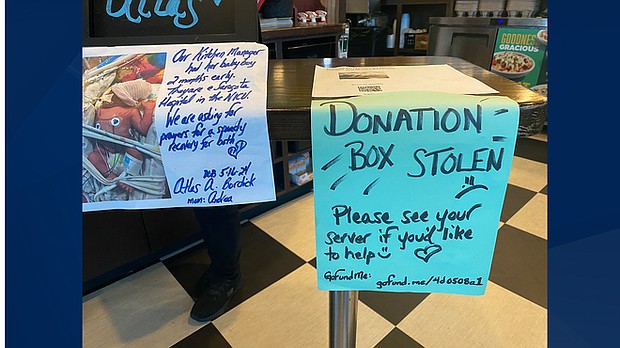 Atlas
Our Kitchen Manager
had her baby boy
2 months early.
They are @ Sarasota
Hospital in the NICU.
We are asking for
prayers for a speedy
recovery for both
DOB 5-16-24
Atlas A. Bordick
mom: Andrea
DONATION
BOX STOLEN
Please see your
server if you'd like
to help
GoFundMe:
gofund.me/4d0508a1
GOODNESS
GRACIOUS